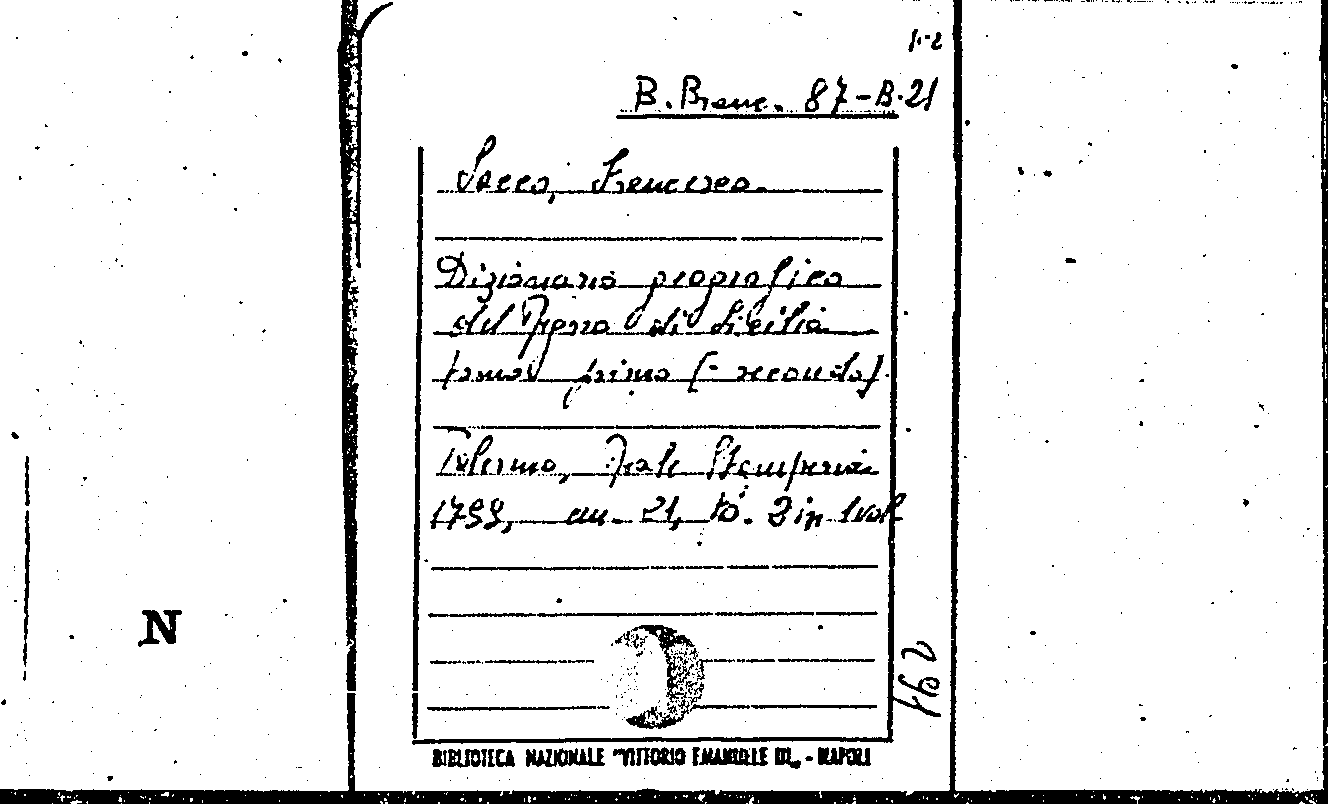 1-2
B. Branc. 87-B-21
Sacco, Francesco.
Dizionario geografico
del Regno di Sicilia
tomo primo [- secondo].
Palermo, Reale Stamperia
1799, cm. 21, to. 2 in 1 vol
N
BIBLIOTECA NAZIONALE "VITTORIO EMANUELE III„ - NAPOLI